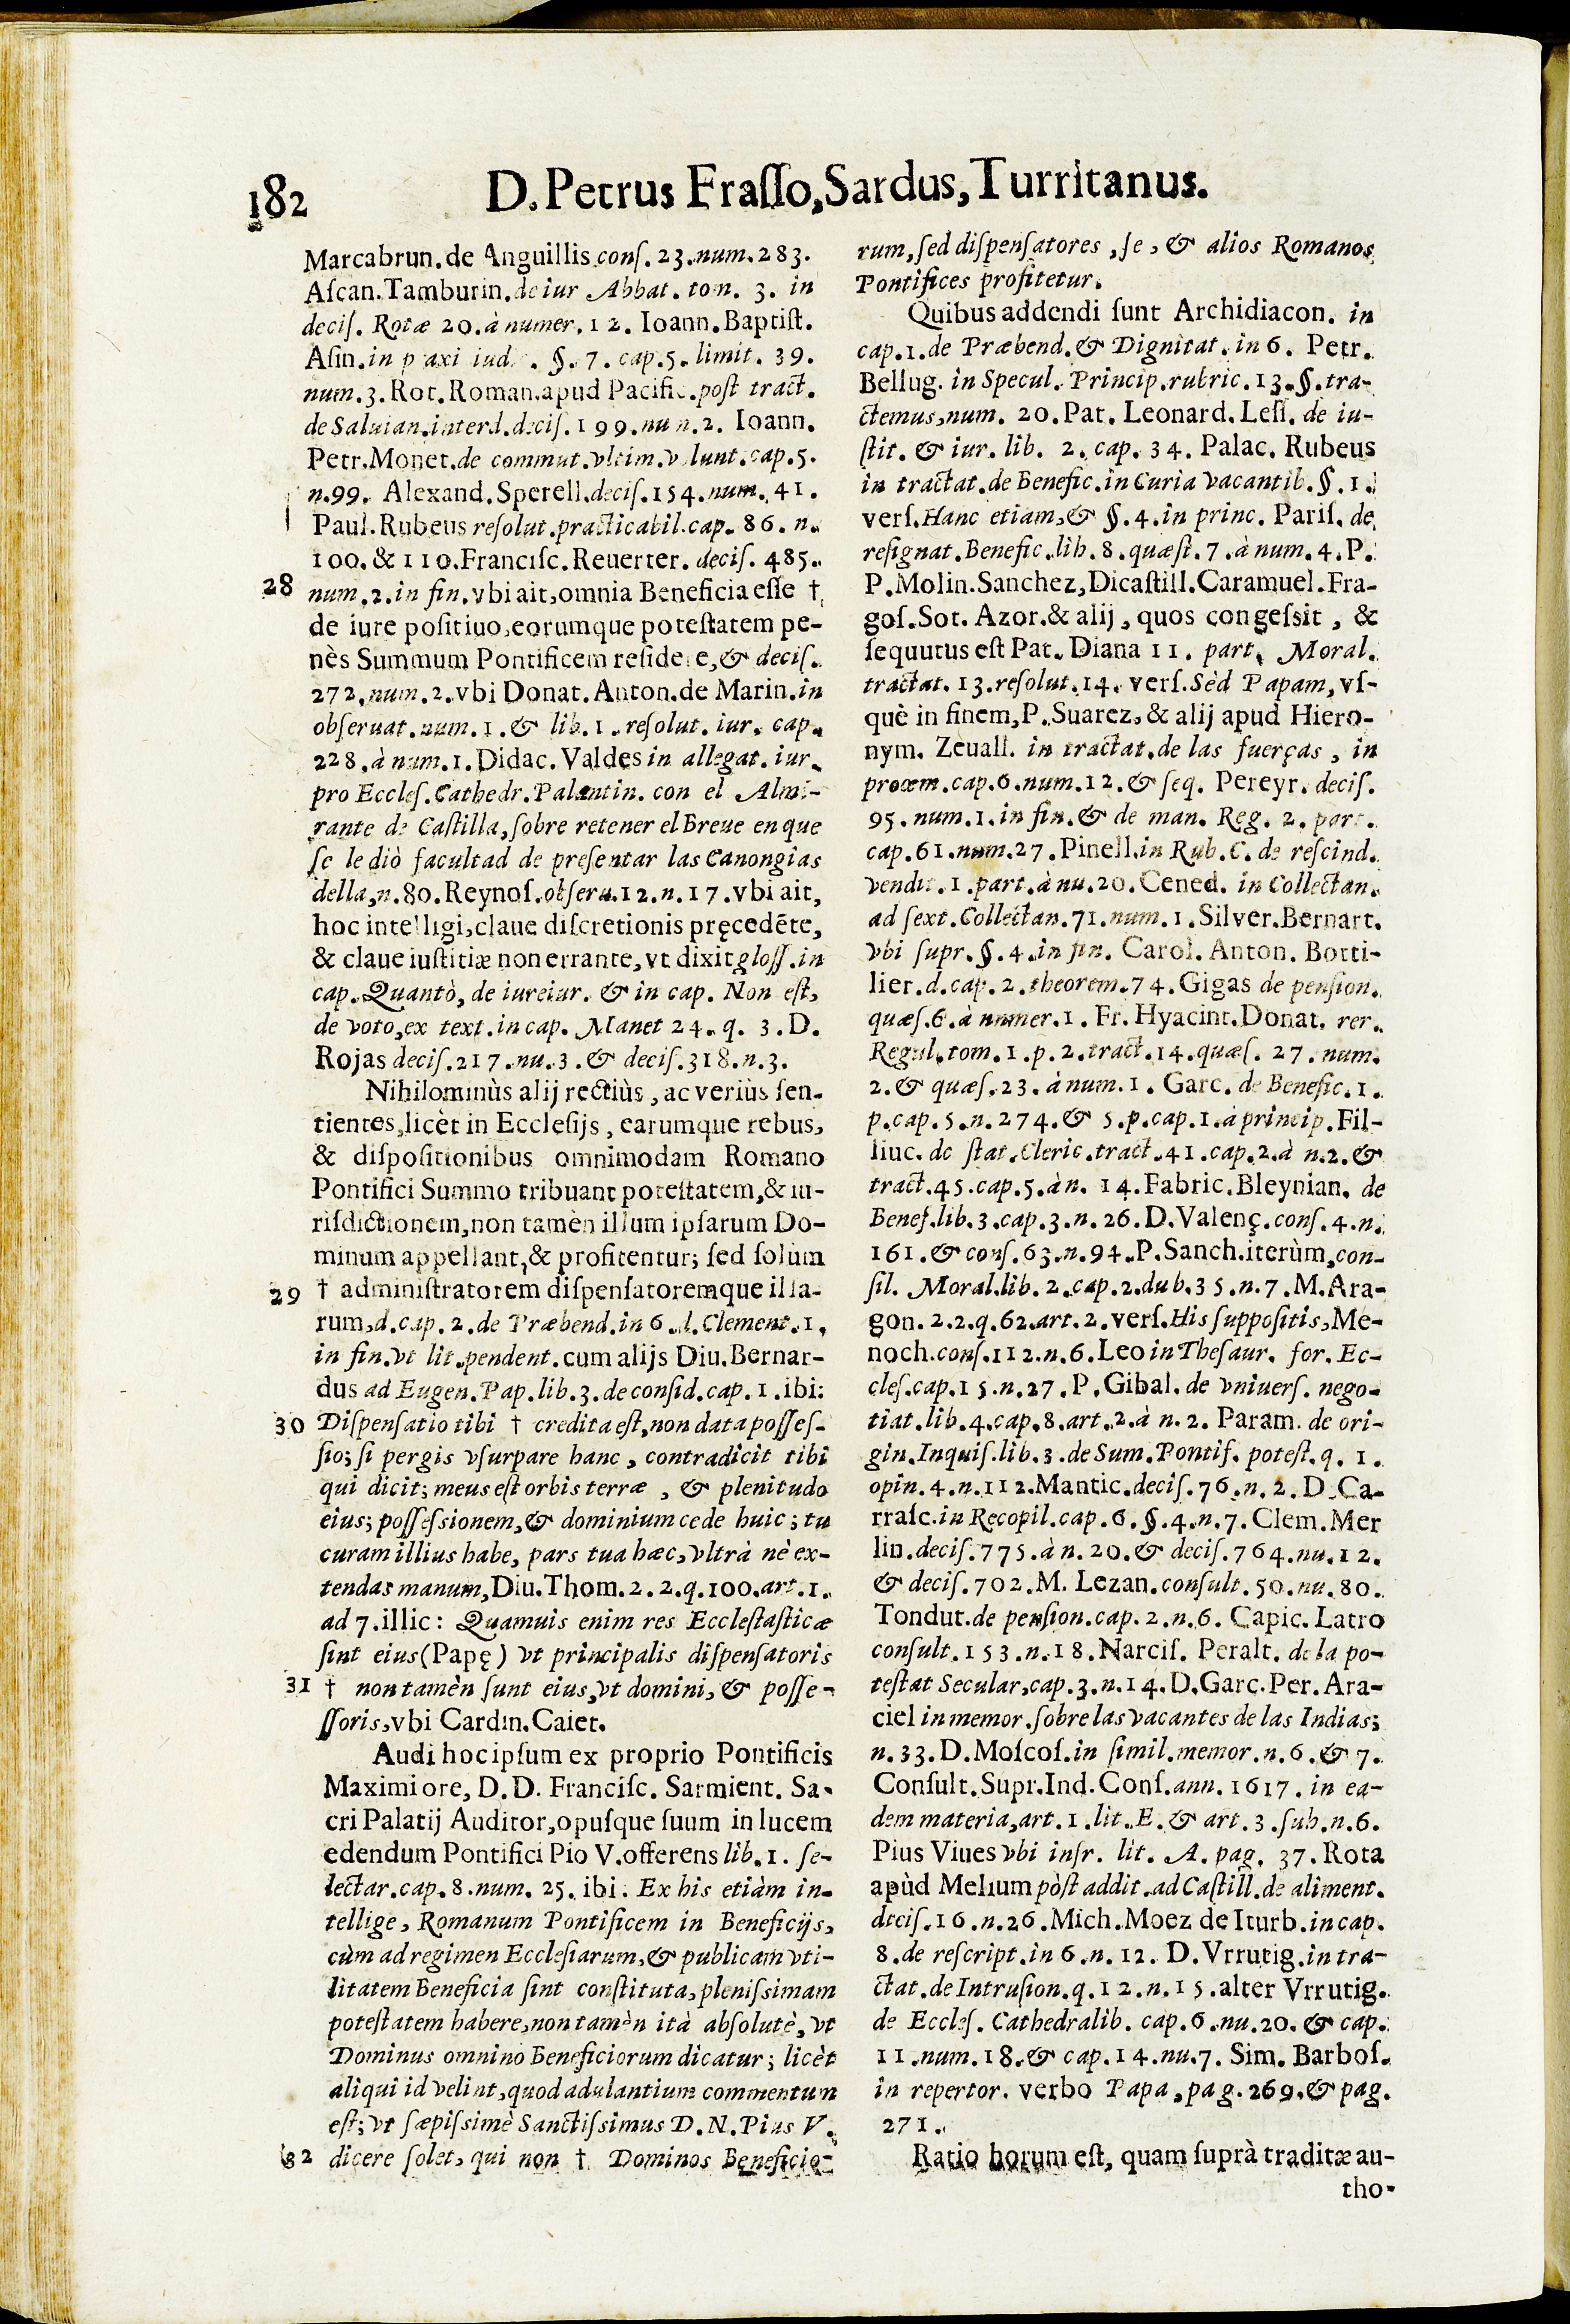 182
D. Petrus Fraſſo, Sardus, Turritanus.
Marcabrun. de Anguillis conſ. 23. num. 283.
Aſcan. Tamburin. de iur Abbat. tom. 3. in
deciſ. Rotæ 20. à numer. 12. Ioann. Baptiſt.
Aſin. in praxi iudic. §. 7. cap. 5. limit. 39.
num. 3. Rot. Roman. apud Pacific. poſt tract.
de Saluian. interd. deciſ. 199. num. 2. Ioann.
Petr. Monet. de commut. vltim. volunt. cap. 5.
n. 99. Alexand. Sperell. deciſ. 154. num. 41.
Paul. Rubeus reſolut. practicabil. cap. 86. n.
100. & 110. Franciſc. Reuerter. deciſ. 485.
28 num. 2. in fin. vbi ait, omnia Beneficia eſſe †
de iure poſitiuo, eorumque poteſtatem pe-
nès Summum Pontificem reſidere, & deciſ.
272. num. 2. vbi Donat. Anton. de Marin. in
obſeruat. num. 1. & lib. 1. reſolut. iur. cap.
228. à num. 1. Didac. Valdes in allegat. iur.
pro Eccleſ. Cathedr. Palentin. con el Almi-
rante de Caſtilla, ſobre retener el Breue en que
ſe le diò facultad de preſentar las Canongias
della, n. 80. Reynoſ. obſeru. 12. n. 17. vbi ait,
hoc intelligi, claue diſcretionis pręcedẽte,
& claue iuſtitiæ non errante, vt dixit gloſſ. in
cap. Quantò, de iureiur. & in cap. Non eſt,
de voto, ex text. in cap. Manet 24. q. 3. D.
Rojas deciſ. 217. nu. 3. & deciſ. 318. n. 3.
Nihilominùs alij rectiùs, ac veriùs ſen-
tientes, licèt in Eccleſijs, earumque rebus,
& diſpoſitionibus omnimodam Romano
Pontifici Summo tribuant poteſtatem, & iu-
riſdictionem, non tamèn illum ipſarum Do-
minum appellant, & profitentur; ſed ſolùm
29 † adminiſtratorem diſpenſatoremque illa-
rum, d. cap. 2. de Præbend. in 6. d. Clement. 1.
in fin. vt lit. pendent. cum alijs Diu. Bernar-
dus ad Eugen. Pap. lib. 3. de conſid. cap. 1. ibi:
30 Diſpenſatio tibi † credita eſt, non data poſſeſ-
ſio; ſi pergis vſurpare hanc, contradicit tibi
qui dicit; meus eſt orbis terræ, & plenitudo
eius; poſſeſsionem, & dominium cede huic; tu
curam illius habe, pars tua hæc, vltrà nè ex-
tendas manum, Diu. Thom. 2. 2. q. 100. art. 1.
ad 7. illic: Quamuis enim res Eccleſtaſticæ
ſint eius (Papę) vt principalis diſpenſatoris
31 † non tamèn ſunt eius, vt domini, & poſſe-
ſſoris, vbi Cardin. Caiet.
Audi hoc ipſum ex proprio Pontificis
Maximi ore, D. D. Franciſc. Sarmient. Sa-
cri Palatij Auditor, opuſque ſuum in lucem
edendum Pontifici Pio V. offerens lib. 1. ſe-
lectar. cap. 8. num. 25. ibi. Ex his etiàm in-
tellige, Romanum Pontificem in Beneficijs,
cùm ad regimen Eccleſiarum, & publicam vti-
litatem Beneficia ſint conſtituta, pleniſsimam
poteſtatem habere, non tamèn ità abſolutè, vt
Dominus omnino Beneficiorum dicatur; licèt
aliqui id velint, quod adulantium commentum
eſt; vt ſæpiſsimè Sanctiſsimus D. N. Pius V.
32 dicere ſolet, qui non † Dominos Beneficio-
rum, ſed diſpenſatores, ſe, & alios Romanos
Pontifices profitetur.
Quibus addendi ſunt Archidiacon. in
cap. 1. de Præbend. & Dignitat. in 6. Petr.
Bellug. in Specul. Princip. rubric. 13. §. tra-
ctemus, num. 20. Pat. Leonard. Leſſ. de iu-
ſtit. & iur. lib. 2. cap. 34. Palac. Rubeus
in tractat. de Benefic. in Curia vacantib. §. 1.
verſ. Hanc etiam, & §. 4. in princ. Pariſ. de
reſignat. Benefic. lib. 8. quæſt. 7. à num. 4. P.
P. Molin. Sanchez, Dicaſtill. Caramuel. Fra-
goſ. Sot. Azor. & alij, quos congeſsit, &
ſequutus eſt Pat. Diana 11. part. Moral.
tractat. 13. reſolut. 14. verſ. Sèd Papam, vſ-
què in finem, P. Suarez, & alij apud Hiero-
nym. Zeuall. in tractat. de las fuerças, in
proœm. cap. 6. num. 12. & ſeq. Pereyr. deciſ.
95. num. 1. in fin. & de man. Reg. 2. part.
cap. 61. num. 27. Pinell. in Rub. C. de reſcind.
vendit. 1. part. à nu. 20. Cened. in Collectan.
ad ſext. Collectan. 71. num. 1. Silver. Bernart.
vbi ſupr. §. 4. in fin. Carol. Anton. Botti-
lier. d. cap. 2. theorem. 74. Gigas de penſion.
quæſ. 6. à numer. 1. Fr. Hyacint. Donat. rer.
Regul. tom. 1. p. 2. tract. 14. quæſ. 27. num.
2. & quæſ. 23. à num. 1. Garc. de Benefic. 1.
p. cap. 5. n. 274. & 5. p. cap. 1. à princip. Fil-
liuc. de ſtat. Cleric. tract. 41. cap. 2. à n. 2. &
tract. 45. cap. 5. à n. 14. Fabric. Bleynian. de
Benef. lib. 3. cap. 3. n. 26. D. Valenç. conſ. 4. n.
161. & conſ. 63. n. 94. P. Sanch. iterùm, con-
ſil. Moral. lib. 2. cap. 2. dub. 35. n. 7. M. Ara-
gon. 2. 2. q. 62. art. 2. verſ. His ſuppoſitis, Me-
noch. conſ. 112. n. 6. Leo in Theſaur. for. Ec-
cleſ. cap. 15. n. 27. P. Gibal. de vniuerſ. nego-
tiat. lib. 4. cap. 8. art. 2. à n. 2. Param. de ori-
gin. Inquiſ. lib. 3. de Sum. Pontif. poteſt. q. 1.
opin. 4. n. 112. Mantic. deciſ. 76. n. 2. D. Ca-
rraſc. in Recopil. cap. 6. §. 4. n. 7. Clem. Mer
lin. deciſ. 775. à n. 20. & deciſ. 764. nu. 12.
& deciſ. 702. M. Lezan. conſult. 50. nu. 80.
Tondut. de penſion. cap. 2. n. 6. Capic. Latro
conſult. 153. n. 18. Narciſ. Peralt. de la po-
teſtat Secular, cap. 3. n. 14. D. Garc. Per. Ara-
ciel in memor. ſobre las vacantes de las Indias;
n. 33. D. Moſcoſ. in ſimil. memor. n. 6. & 7.
Conſult. Supr. Ind. Conſ. ann. 1617. in ea-
dem materia, art. 1. lit. E. & art. 3. ſub. n. 6.
Pius Viues vbi infr. lit. A. pag. 37. Rota
apùd Melium pòſt addit. ad Caſtill. de aliment.
deciſ. 16. n. 26. Mich. Moez de Iturb. in cap.
8. de reſcript. in 6. n. 12. D. Vrrutig. in tra-
ctat. de Intruſion. q. 12. n. 15. alter Vrrutig.
de Eccleſ. Cathedralib. cap. 6. nu. 20. & cap.
11. num. 18. & cap. 14. nu. 7. Sim. Barboſ.
in repertor. verbo Papa, pag. 269. & pag.
271.
Ratio horum eſt, quam ſuprà traditæ au-
tho-